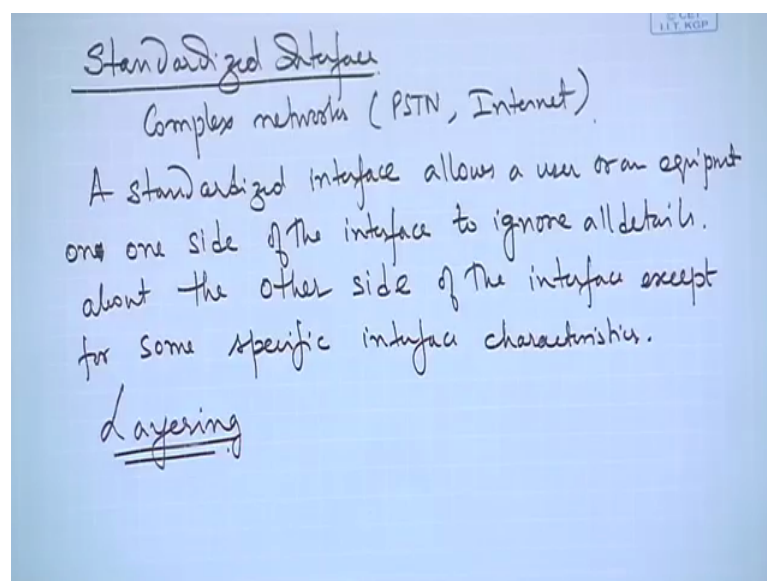 © CET
I.I.T. KGP
Standardized Interface
Complex networks (PSTN, Internet).
A standardized interface allows a user or an equipment
on one side of the interface to ignore all details.
about the other side of the interface except
for some specific interface characteristics.
Layering